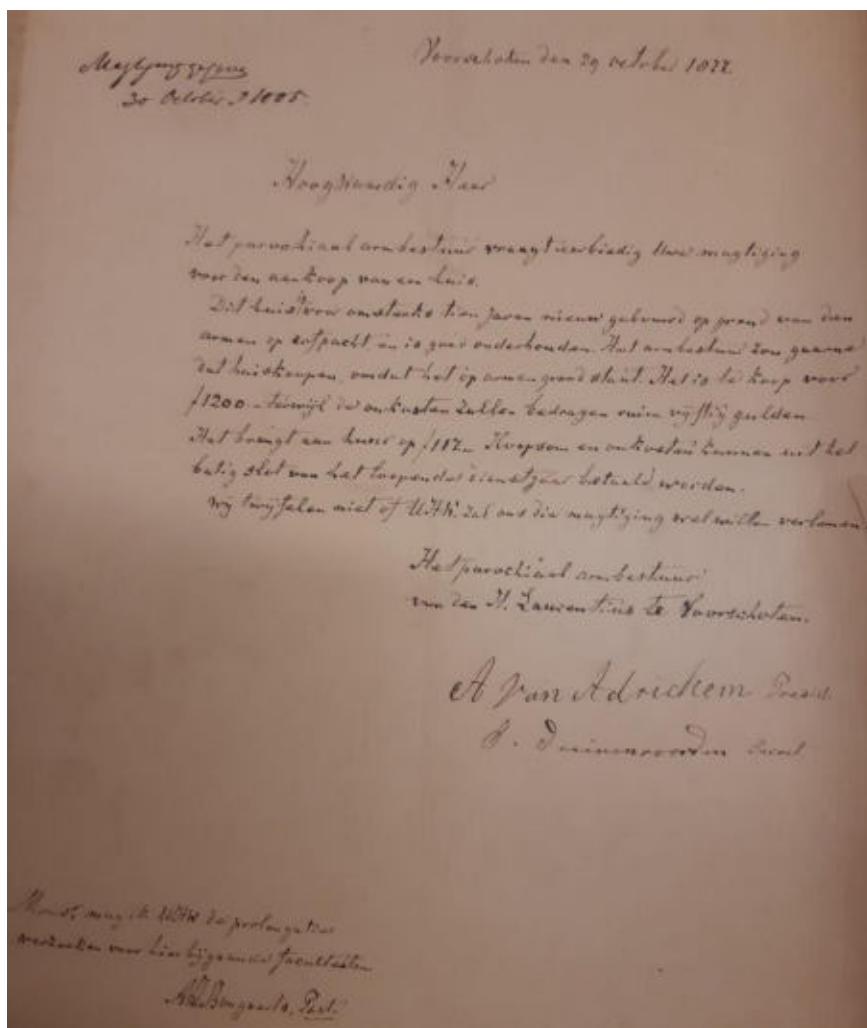 Voorschoten den 29 october 1877.
Magtiging gegeven
30 October 1005.
Hoogwaardig Heer
Het parochiaal armbestuur vraagt eerbiedig Uwe magtiging
voor den aankoop van een huis.
Dit huis voor omstreeks tien jaren nieuw gebouwd op grond van den
armen op erfpacht en is goed onderhouden. Het armbestuur zou gaarne
dat huis koopen, omdat het op armengrond staat. Het is te koop voor
ƒ1200 - terwijl de onkosten zullen bedragen ruim vijftig gulden
Het brengt aan huur op ƒ117 Koopsom en onkosten kunnen uit het
batig slot van het loopende dienstjaar betaald worden.
Wy twyfelen niet of UDHW. zal ons die magtiging wel willen verleenen
Het parochiaal armbestuur
van den H. Laurentius te Voorschoten.
A van Adrichem Presid.
P. Duivenvoorden Secret.
mag ik UDHW de prolongatie
verzoeken voor hierbijgaande faculteiten
Bongaerts, Past.